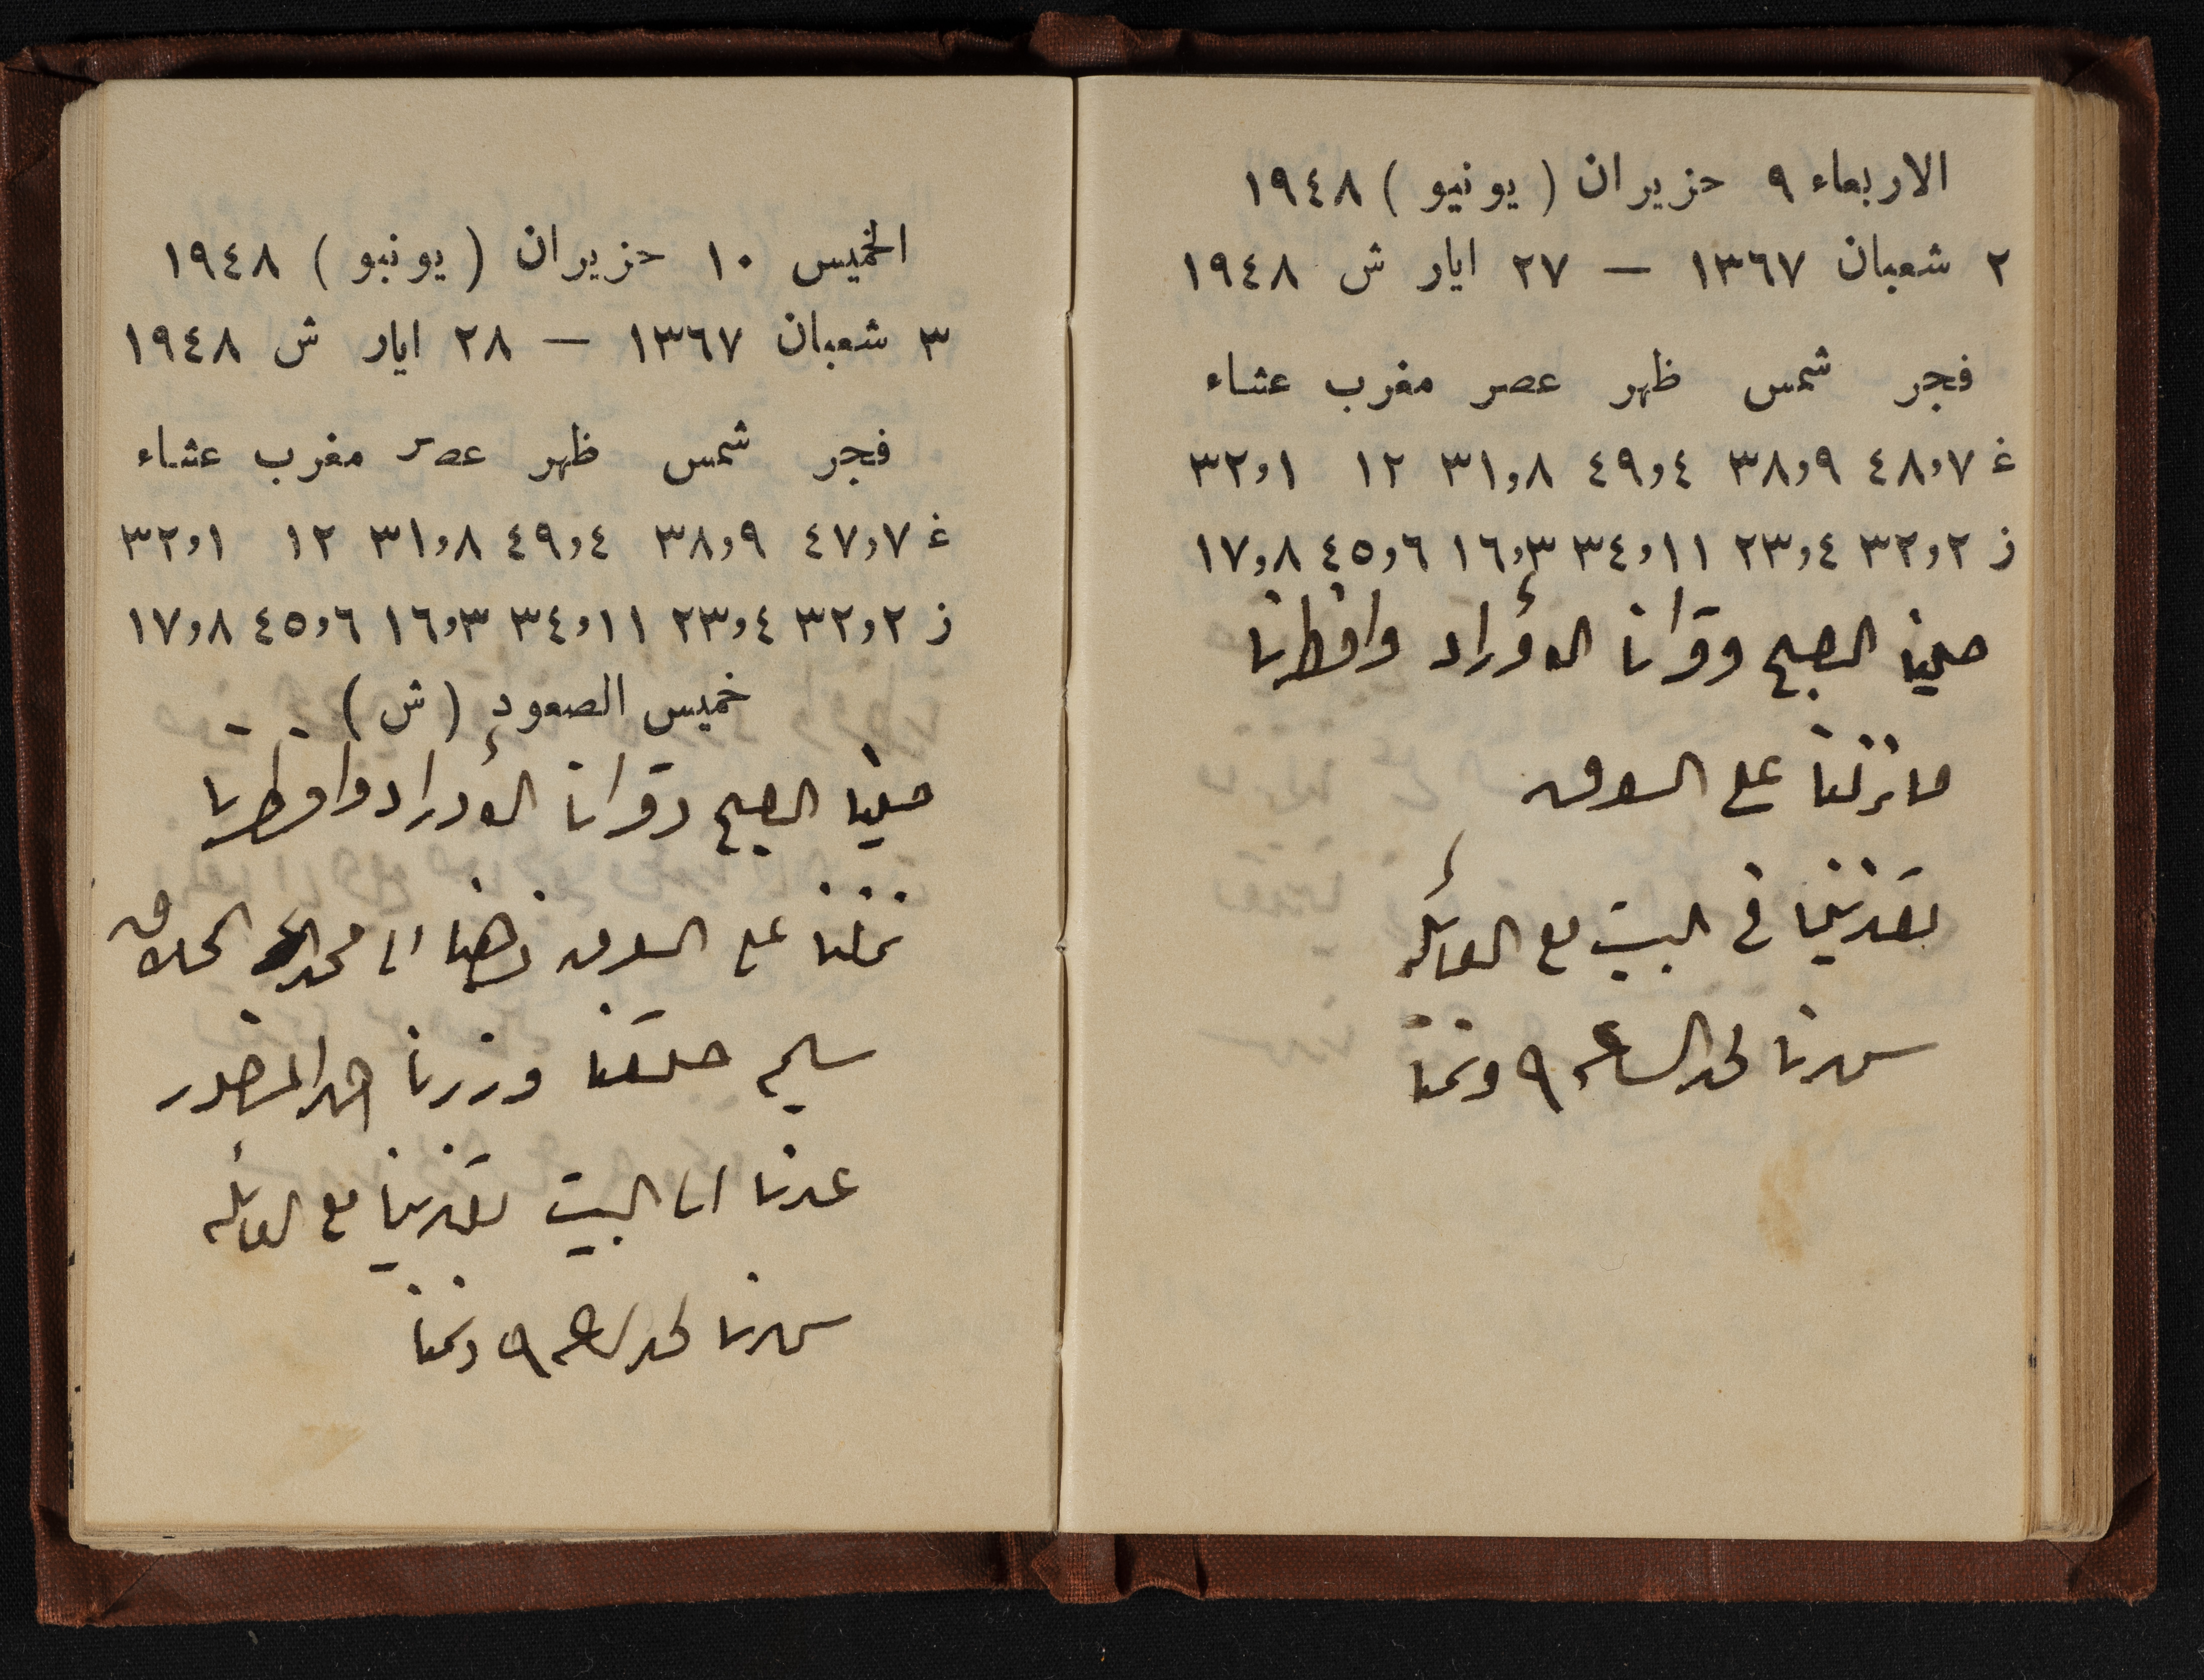 الاربعاء ٩ حزيران ( يونيو ) ١٩٤٨
٢ شعبان ١٣٦٧ — ٢٧ ايار ش ١٩٤٨
فجر شمس ظهر عصر مغرب عشاء
غ ٧,٤٨ ٩,٣٨ ٤,٤٩ ٨,٣١ ١٢ ١,٣٢
ز ٢,٣٢ ٤,٢٣ ١١,٣٤ ٣,١٦ ٦,٤٥ ٨,١٧
صلينا الصبح وقرانا الاوراد وافطرنا
ما نزلنا على السوق
تغذينا في البيت مع العائله
سهرنا لحد الساعه ٩ ونمنا
الخميس ١٠ حزيران ( يونيو ) ١٩٤٨
٣ شعبان ١٣٦٧ — ٢٨ ايار ش ١٩٤٨
فجر شمس ظهر عصر مغرب عشاء
غ ٧,٤٧ ٩,٣٨ ٤,٤٩ ٨,٣١ ١٢ ١,٣٢
ز ٢,٣٢ ٤,٢٣ ١١,٣٤ ٣,١٦ ٦,٤٥ ٨,١٧
خميس الصعود ( ش )
صلينا الصبح وقرانا الاوراد وافطرنا
نزلنا على السوق ذهبنا الى محمد الحلاق
سليم حلقنا وزرنا احمد
عدنا الى البيت تغذينا مع العائله
سهرنا لحد الساعه ٩ ونمنا